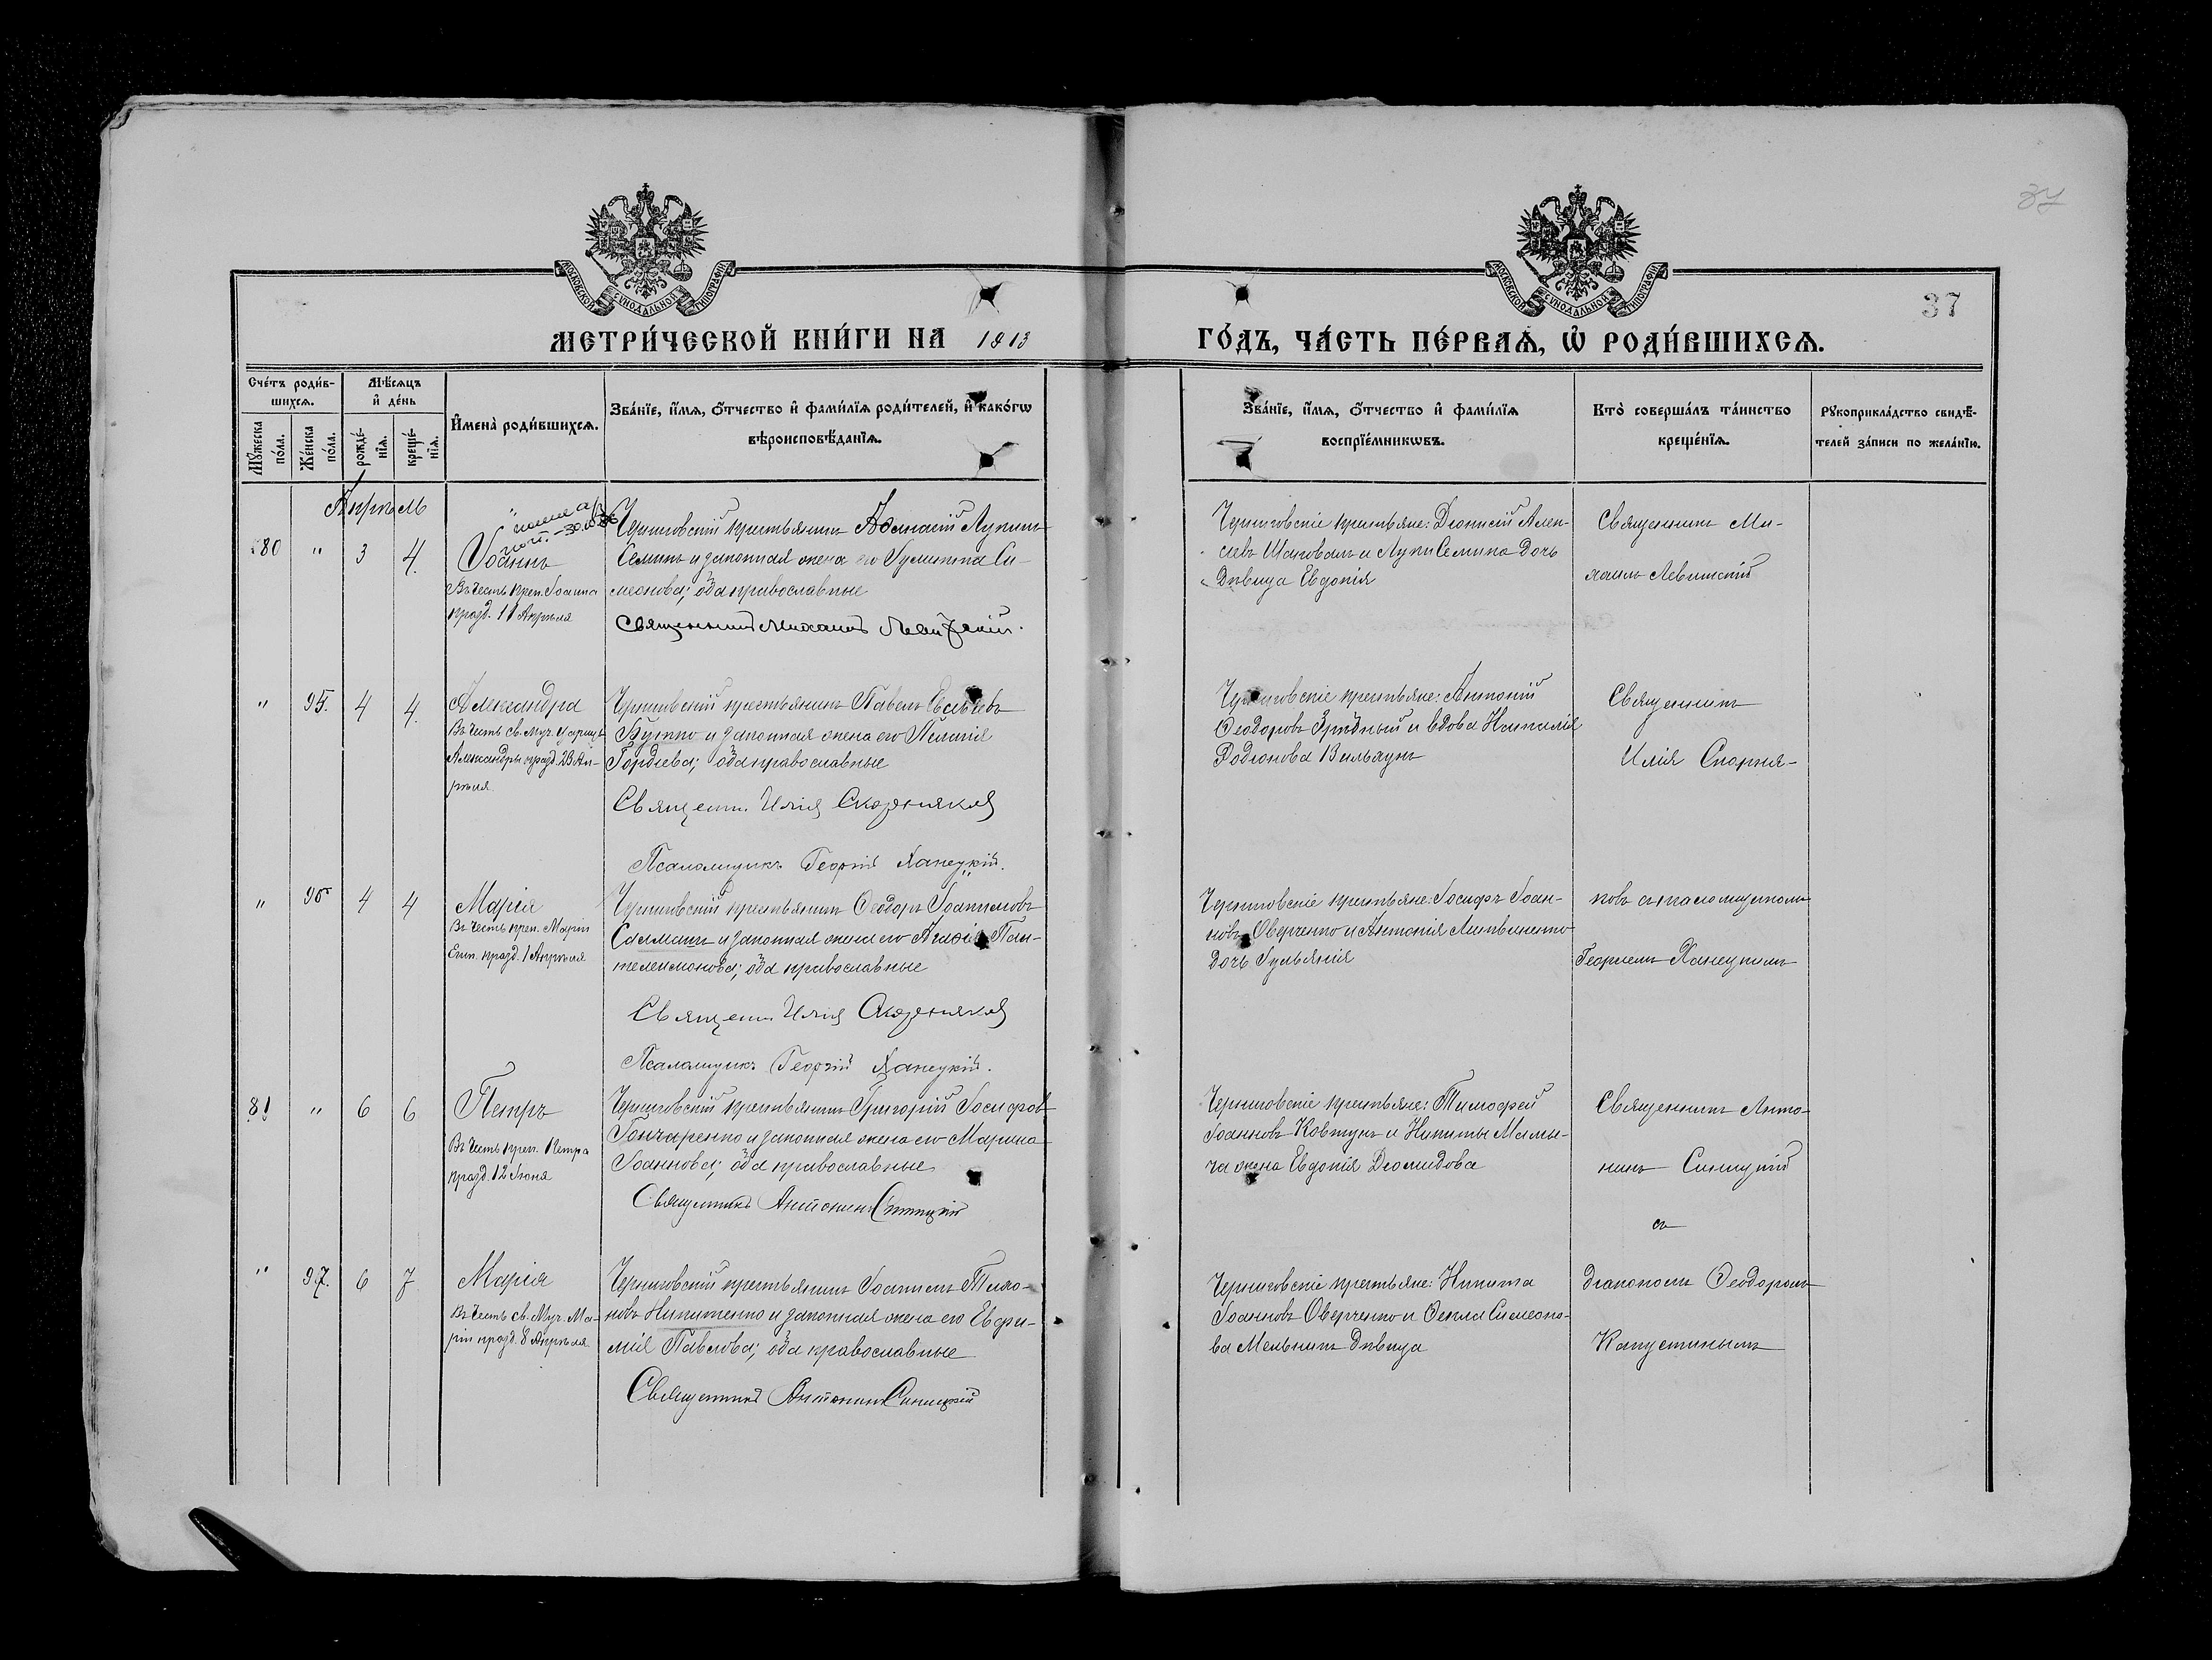 37
МОСКОВСКОЙ СѴНОДАЛЬНОЙ ТИПОГРАФІИ
МОСКОВСКОЙ СѴНОДАЛЬНОЙ ТИПОГРАФІИ
37
МЕТРИ́ЧЕСКОЙ КНИ́ГИ НА 1913
ГО́ДЪ, ЧА́СТЬ ПЕ́РВАѦ, Ѽ РОДИ́ВШИХСѦ.
Сче́тъ роди́в-
шихсѧ.
Мѣ́сѧцъ
и҆ де́нь
Мꙋ́жеска
по́ла.
Же́нска
по́ла.
рожде́-
нїѧ.
креще́-
нїѧ.
И҆мена̀ роди́вшихсѧ.
Зва́нїе, и҆́мѧ, ѻ҆́тчество и҆ фами́лїѧ роди́телей, и҆ како́гѡ
вѣроисповѣ́данїѧ.
Зва́нїе, и҆́мѧ, ѻ҆́тчество и҆ фами́лїѧ
воспрїе́мникѡвъ.
Кто̀ соверша́лъ та́инство
креще́нїѧ.
Рꙋкоприкла́дство свидѣ́-
телей за́писи по жела́нїю.
Апрѣль
80 " 3 4. Іоаннъ
Въ честь преп. Іоанна
празд. 11 Апрѣля
Черниговскій крестьянинъ Аѳанасій Лукинъ
Семинъ и законная жена его Іулитта Си-
меонова; оба православные
Священникъ Михаилъ Левитскій.
Черниговскіе крестьяне: Діонисій Алек-
сіевъ Шаповалъ и Луки Семина дочь
дѣвица Евдокія
Священникъ Ми-
хаилъ Левитскій
" 95. 4 4. Александра
Въ честь св. муч. Царицы
Александры празд. 23 Ап-
рѣля.
Черниговскій крестьянинъ Павелъ
Бутко и законная жена его Пелагія
Гордіева; оба православные
Священ. Илія Скорняковъ
Псаломщикъ Георгій Ханецкій.
Черниговскіе крестьяне: Антоній
Ѳеодоровъ и вдова Наталія
Родіонова
Священникъ
Илія Скорня-
" 96 4 4 Марія
Въ честь преп. Маріи
Егип. празд. 1 Апрѣля
Черниговскій крестьянинъ Ѳеодоръ Іоакимовъ
Салманъ и законная жена его Агаѳія Пан-
телеимонова; оба православные
Священ. Илія Скорняковъ
Псаломщикъ Георгій Ханецкій.
Черниговскіе крестьяне: Іосифъ Іоан-
новъ Оверченко и Антонія Литвиненко
дочь Іульянія
ковъ съ псаломщикомъ
Георгіемъ Ханецкимъ
81 " 6 6 Петръ
Въ честь преп. Петра
празд. 12 Іюня
Черниговскій крестьянинъ Григорій Іосифовъ
Гончаренко и законная жена его Марина
Іоаннова; оба православные
Священникъ Антонинъ Синицкій
Черниговскіе крестьяне: Тимоѳей
Іоанновъ Ковтунъ и Никиты Мамы-
ча жена Евдокія Діомидова
Священникъ Анто-
нинъ Синицкій
съ
" 97. 6 7 Марія
Въ честь св. Муч. Ма-
ріи празд. 8 Апрѣля
Черниговскій крестьянинъ Іоакимъ Тихо-
новъ Никитенко и законная жена его Евфи-
мія Павлова; оба православные
Священникъ Антонинъ Синицкій
Черниговскіе крестьяне: Никита
Іоанновъ Оверченко и Ѳекла Симеоно-
ва Мельникъ дѣвица
діакономъ Ѳеодоромъ
Капустинымъ